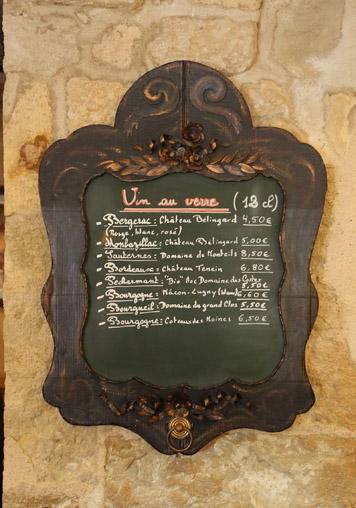 Vin au verre (12 cl)
- Bergerac : Château Bélingard 4,50€
(Rouge, blanc, rosé)
- Monbazillac : Château Bélingard 5,00€
- Sauternes : Domaine de Monteils 8,50€
- Bordeaux : Château Tenein 6,80€
- Pécharmant : "Bio" Roc Domaine des Costes
5,50€
- Bourgogne : Mâcon-Lugny (blanc) 6,60€
- Bourgueil : Domaine du grand Clos 5,50€
- Bourgogne : Coteaux des Moines 6,50€